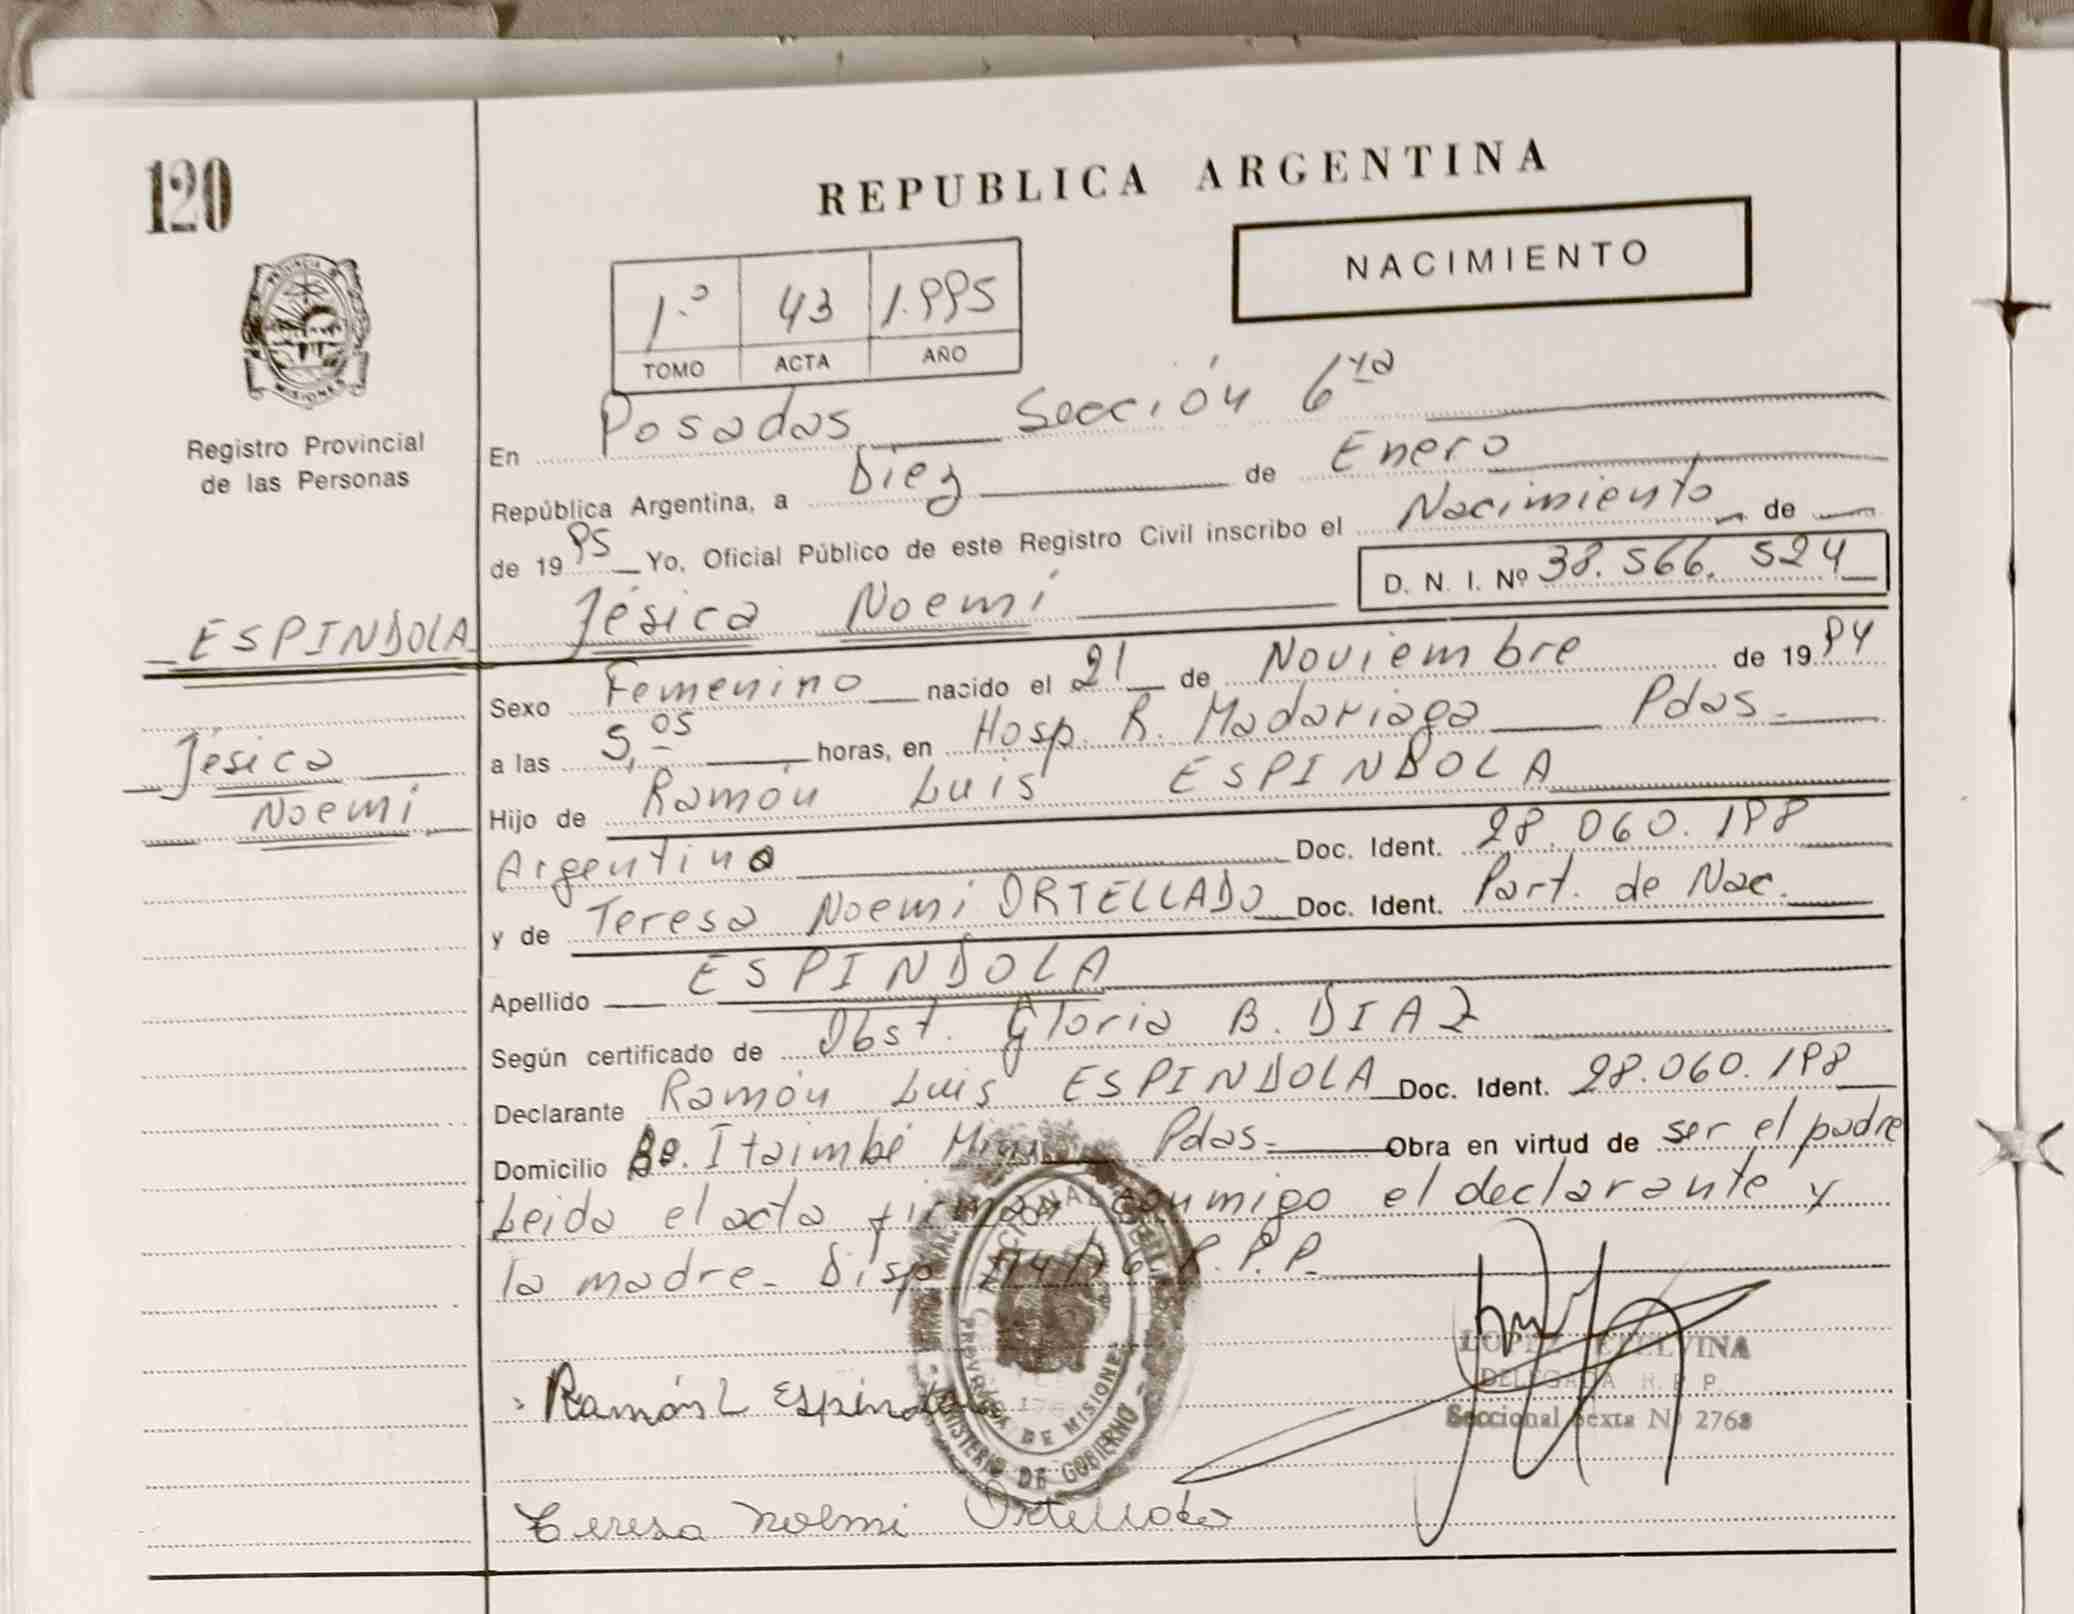 120
REPUBLICA ARGENTINA
NACIMIENTO
1.º 43 1.995
TOMO ACTA AÑO
PROVINCIA DE
MISIONES
Registro Provincial
de las Personas
En Posadas Sección 6ta
República Argentina, a Diez de Enero
de 1995 Yo, Oficial Público de este Registro Civil inscribo el Nacimiento de
D. N. I. Nº 38.566.524
ESPINDOLA Jésica Noemí
Sexo Femenino nacido el 21 de Noviembre de 1994
a las 5,05 horas, en Hosp. R. Madariaga Pdas.
Jésica
Noemí
Hijo de Ramón Luis ESPINDOLA
Argentina Doc. Ident. 28.060.198
y de Teresa Noemi ORTELLADO Doc. Ident. Part. de Nac.
Apellido ESPINDOLA
Según certificado de Obst. Gloria B. DIAZ
Declarante Ramón Luis ESPINDOLA Doc. Ident. 28.060.198
Domicilio Bo. Itaimbé Miní Pdas. Obra en virtud de ser el padre
Leida el acta firman conmigo el declarante y
la madre. Disp. R.P.P.
PROVINCIA DE MISIONES
MINISTERIO DE GOBIERNO
LOPEZ ETELVINA
DELEGADA R. P. P.
Seccional Sexta Nº 2768
Ramón L Espindola
Teresa Noemi Ortellado